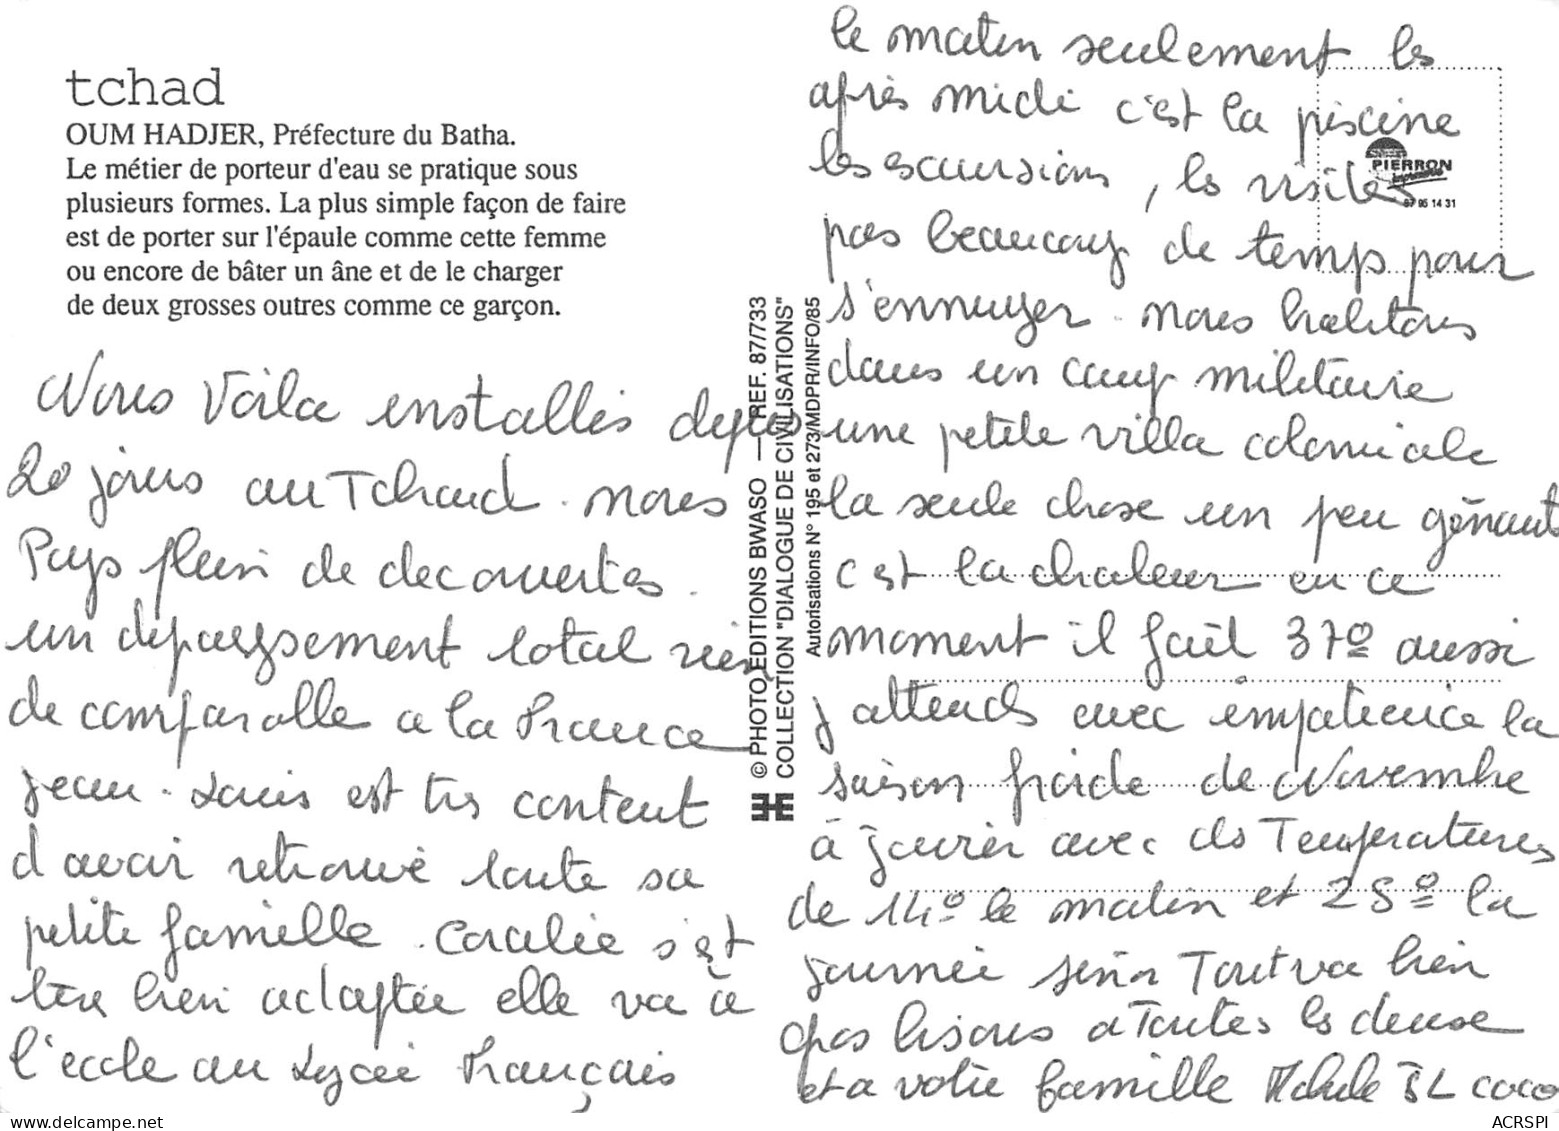 tchad
OUM HADJER, Préfecture du Batha.
Le métier de porteur d'eau se pratique sous
plusieurs formes. La plus simple façon de faire
est de porter sur l'épaule comme cette femme
ou encore de bâter un âne et de le charger
de deux grosses outres comme ce garçon.
Nous Voila installés depuis
20 jours au Tchad. nous
Pays plein de decouvertes.
un depaysement total rien
de comparable a la France
jean-Louis est très content
d avoir retrouvé toute sa
petite famille. Coralie s'est
très bien adaptée elle va à
l'école au Lycée Français
© PHOTO EDITIONS BWASO — REF. 87/733
COLLECTION "DIALOGUE DE CIVILISATIONS"
Autorisations N° 195 et 273/MDPR/INFO/85
le matin seulement les
après midi c'est la piscine
les escursions, les visites
pas beaucoup de temps pour
s'ennuyer. nous habitons
dans un camp militaire
une petite villa coloniale
la seule chose un peu gênante
c est la chaleur en ce
moment il fait 37º aussi
j attends avec impatience la
saison froide de Novembre
à janvier avec des Temperatures
de 14º le matin et 25º la
journée sinon Tout va bien
gros bisous a Toutes les deux
et a votre famille JL coco
PIERRON
Imprimerie
87 95 14 31
ACRSPI